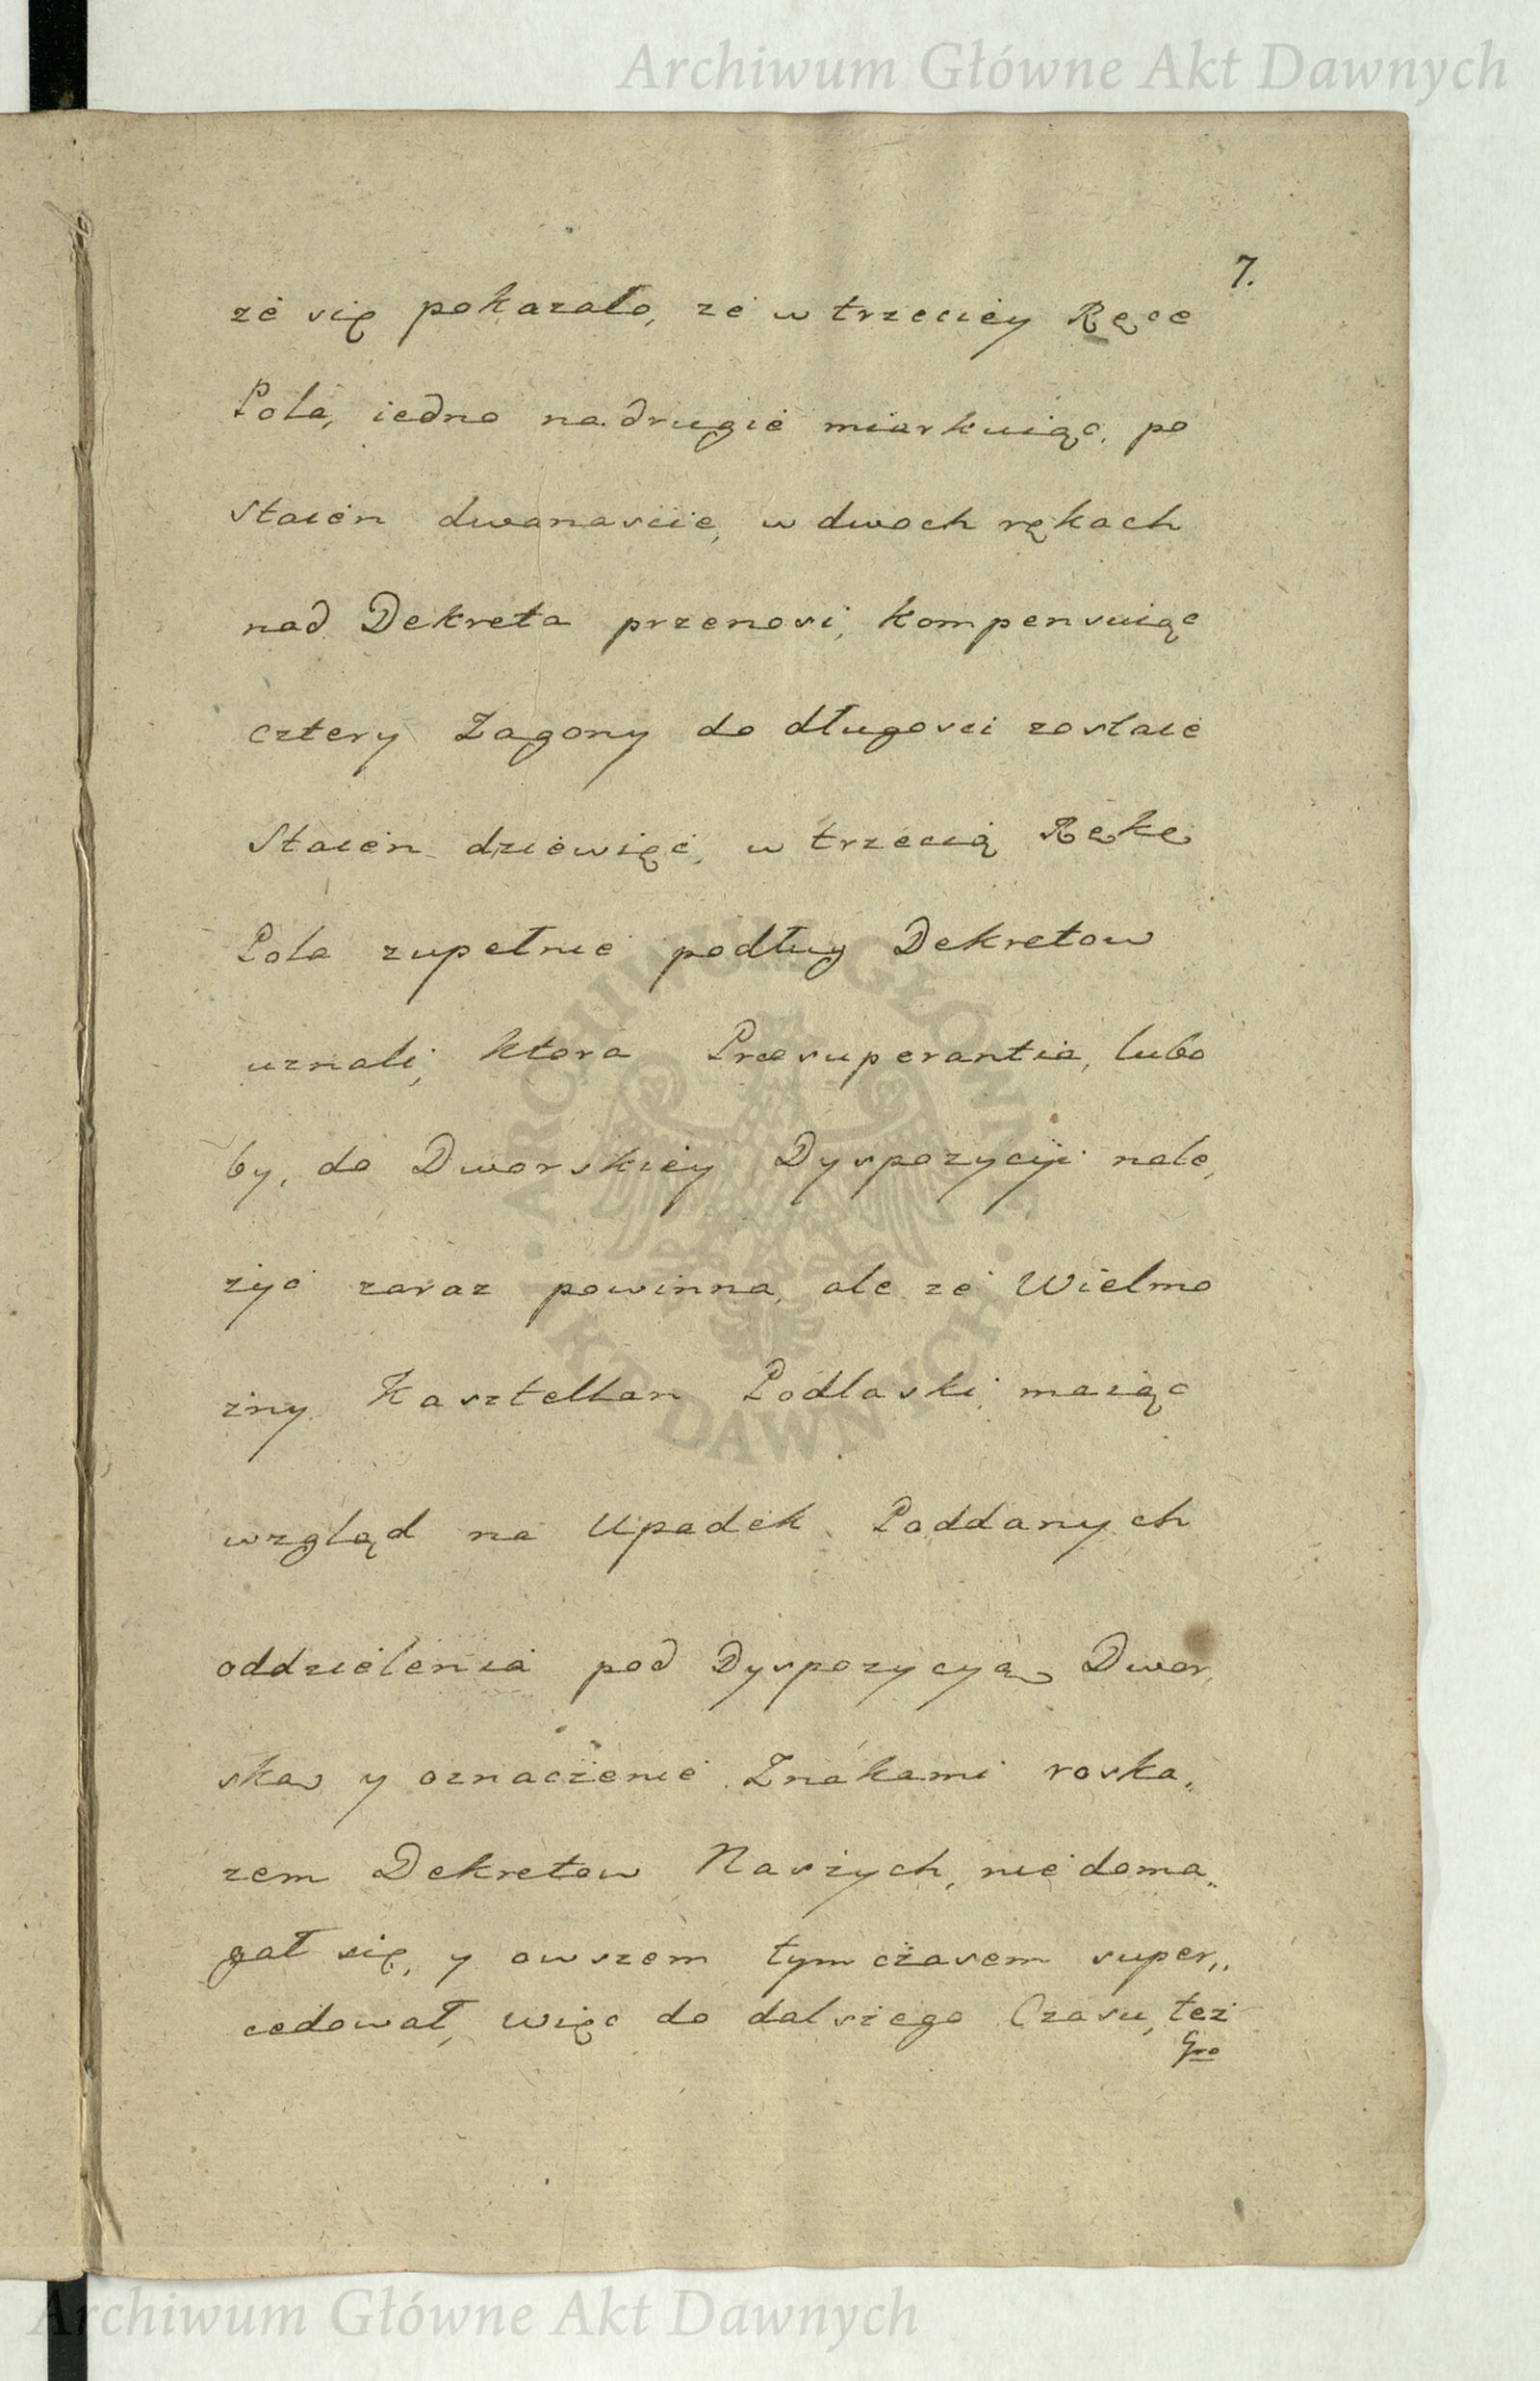 Archiwum Główne Akt Dawnych
7.
że się pokazało, że w trzeciey Ręce
Pola, iedno na drugie miarkuiąc, po
staien dwanaście, w dwoch rękach
nad Dekreta przenosi, kompensuiąc
cztery Zagony do długosci zostaie
Staien dziewięć, w trzecią Rękę
Pola zupełnie podług Dekretow
uznali, ktora Præsuperantia, lubo
by, do Dworskiey Dyspozycyi nale,
żyć zaraz powinna, ale że Wielmo
żny Kasztellan Podlaski, maiąc
wzgląd na Upadek Poddanych
oddzielenia pod Dyspozycyą Dwor,
ską y oznaczenie Znakami roska,,
zem Dekretow Naszych, nie doma,,
gał się, y owszem tym czasem super,,
cedował, więc do dalszego Czasu, też
Gro
ARCHIWUM GŁÓWNE · AKT DAWNYCH ·
Archiwum Główne Akt Dawnych